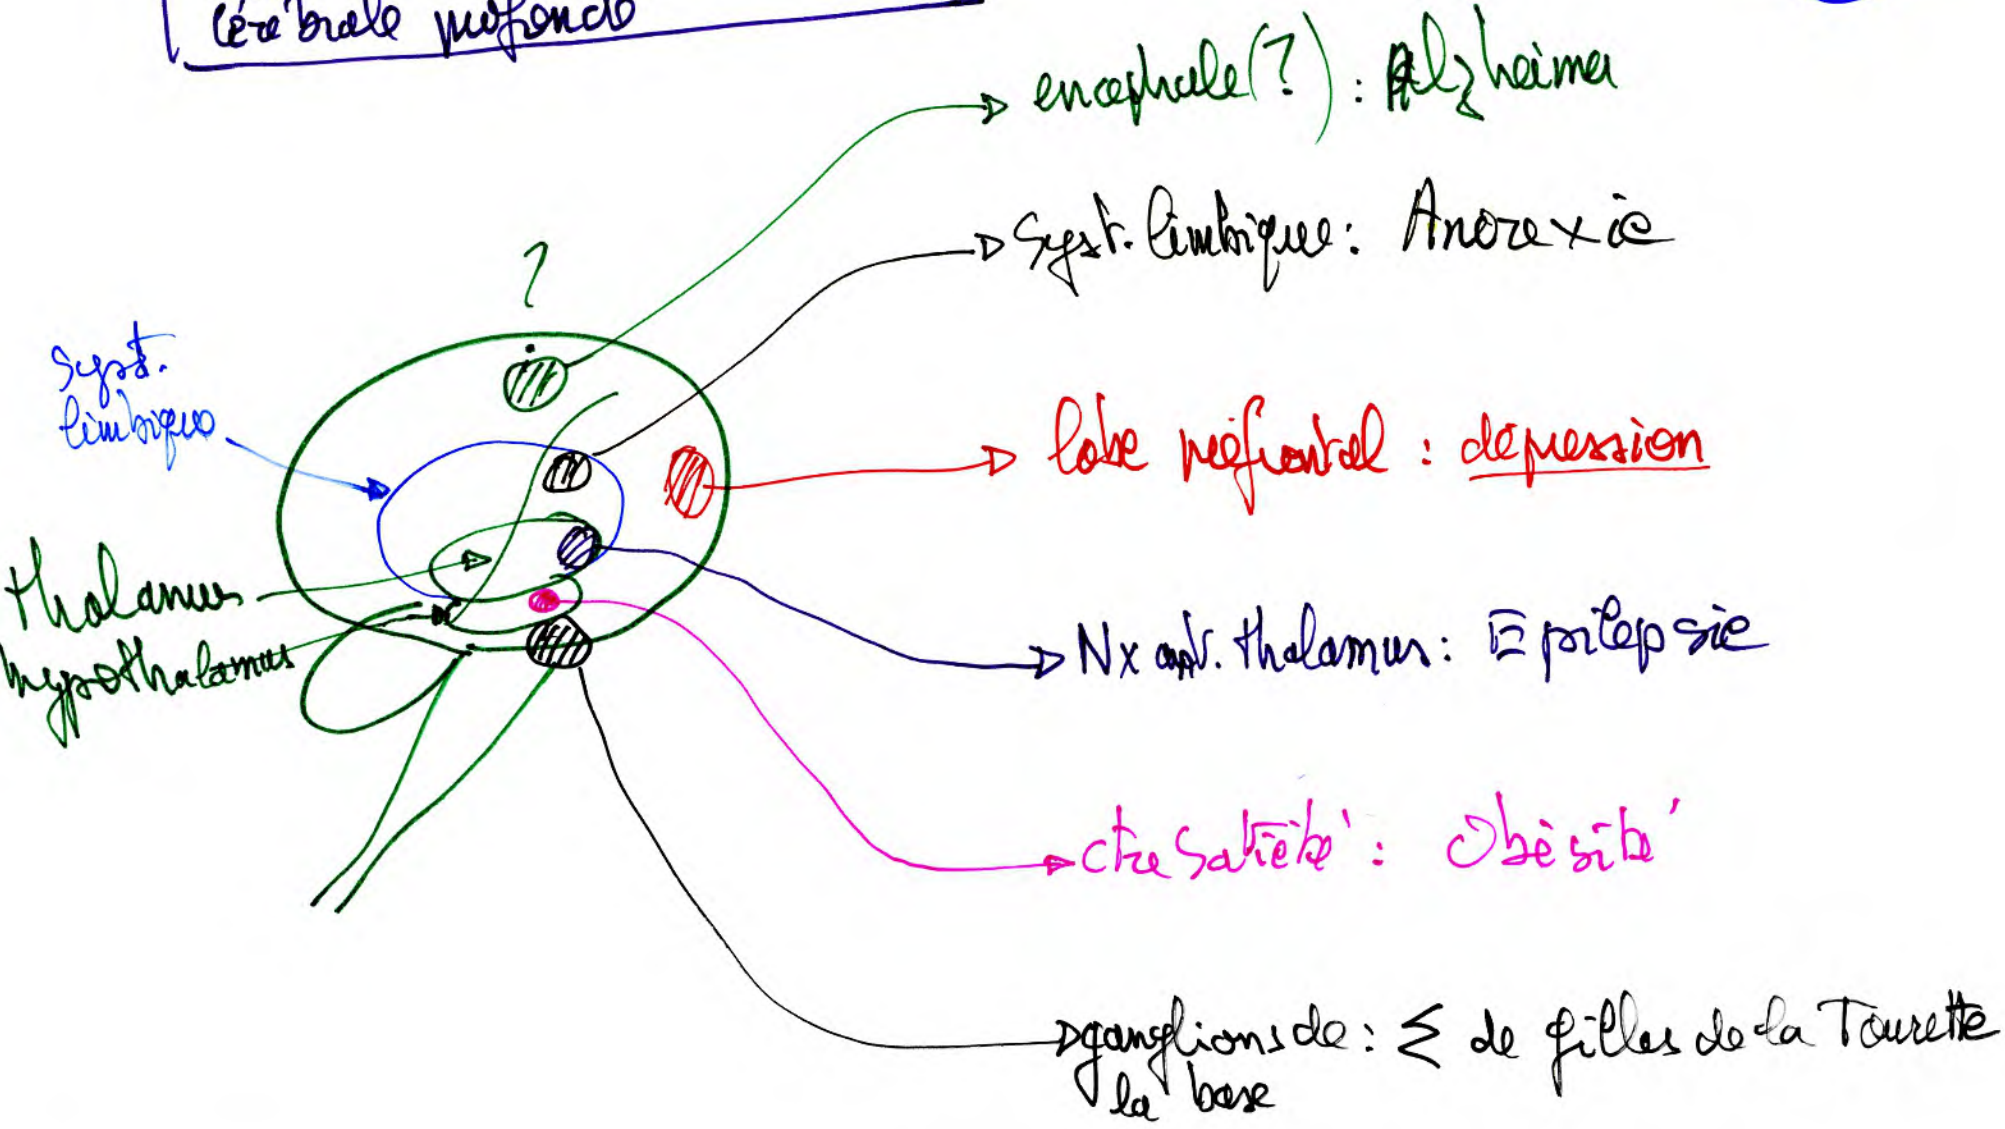 cérébrale profonde
encephale(?) : Alzheimer
Syst. limbique : Anorexie
?
Syst.
limbique
lobe préfrontal : dépression
thalamus
hypothalamus
Nx ant. thalamus : Epilepsie
ctre Satiété : Obésité
ganglions de : Σ de Gilles de la Tourette
la base